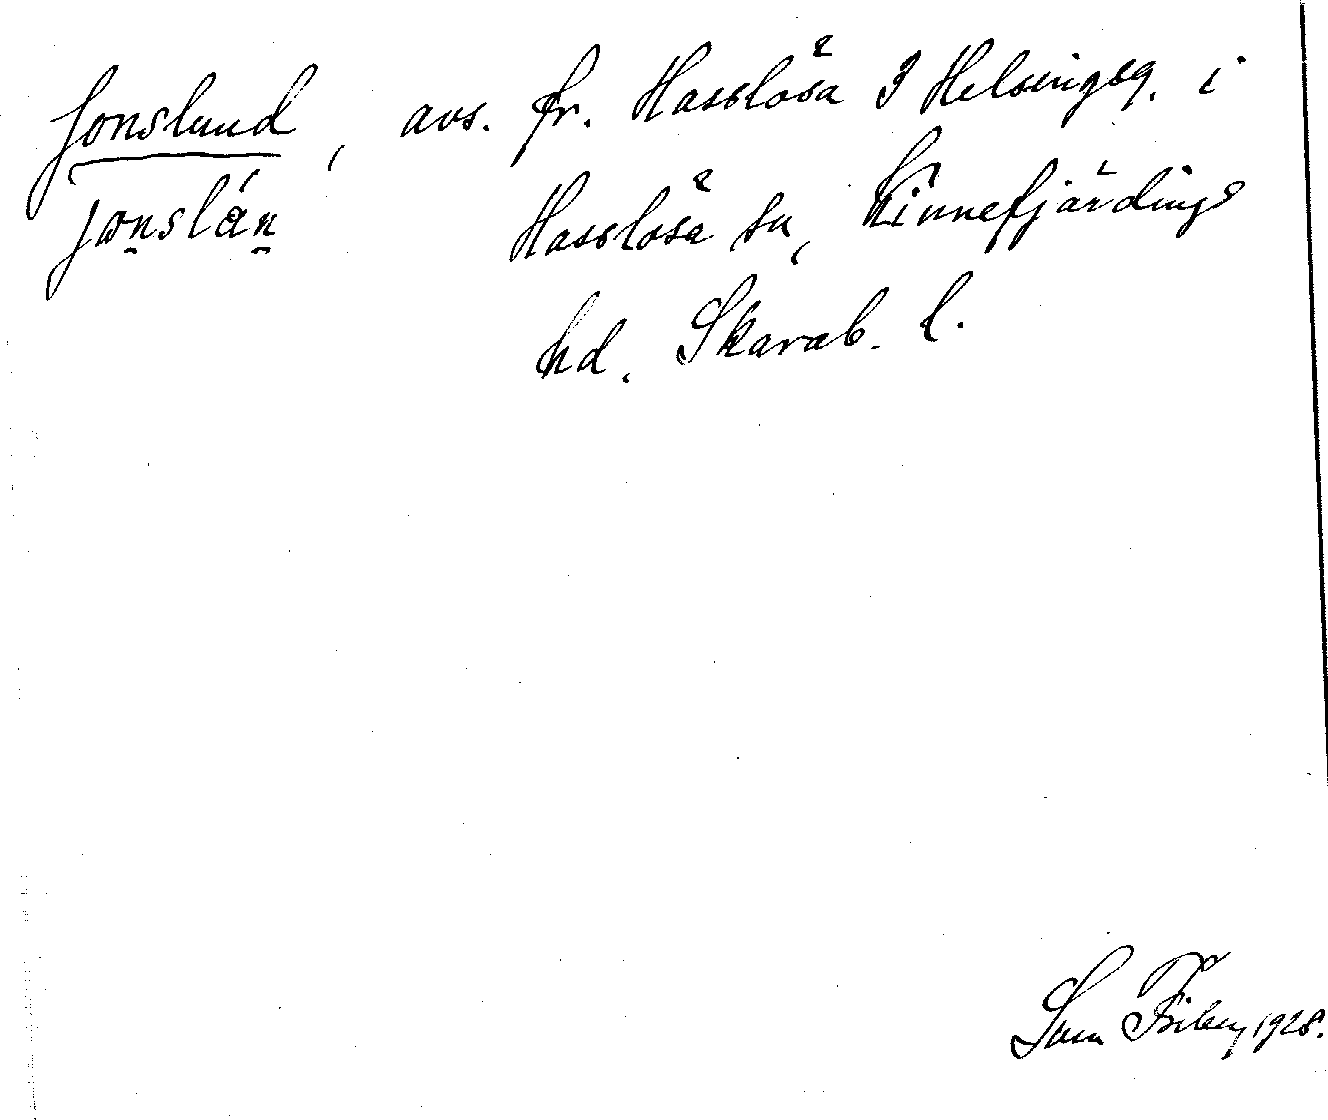 Jonslund, avs. fr. Hasslösa 3 Helsingsg. i
jonslán Hasslösa sn, Kinnefjärdings
hd. Skarab. l.
Sven Friberg 1928.